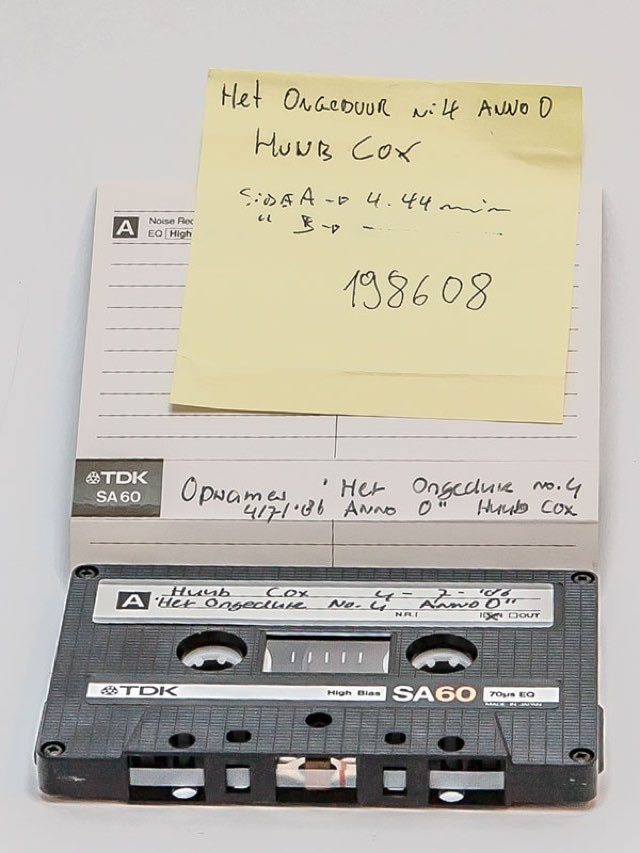 Het Ongeduur nr. 4 Anno 0
Huub Cox
Side A → 4.44 min
" B → -
198608
A Noise Rec
EQ High
TDK
SA 60
Opnames 'Het Ongedure no. 4
4/7/'86 Anno 0" Huub Cox
A Huub Cox 4-7-'86
"Het Ongedure No. 4 Anno 0"
N.R. IN OUT
TDK High Bias SA60 70µs EQ
MADE IN JAPAN